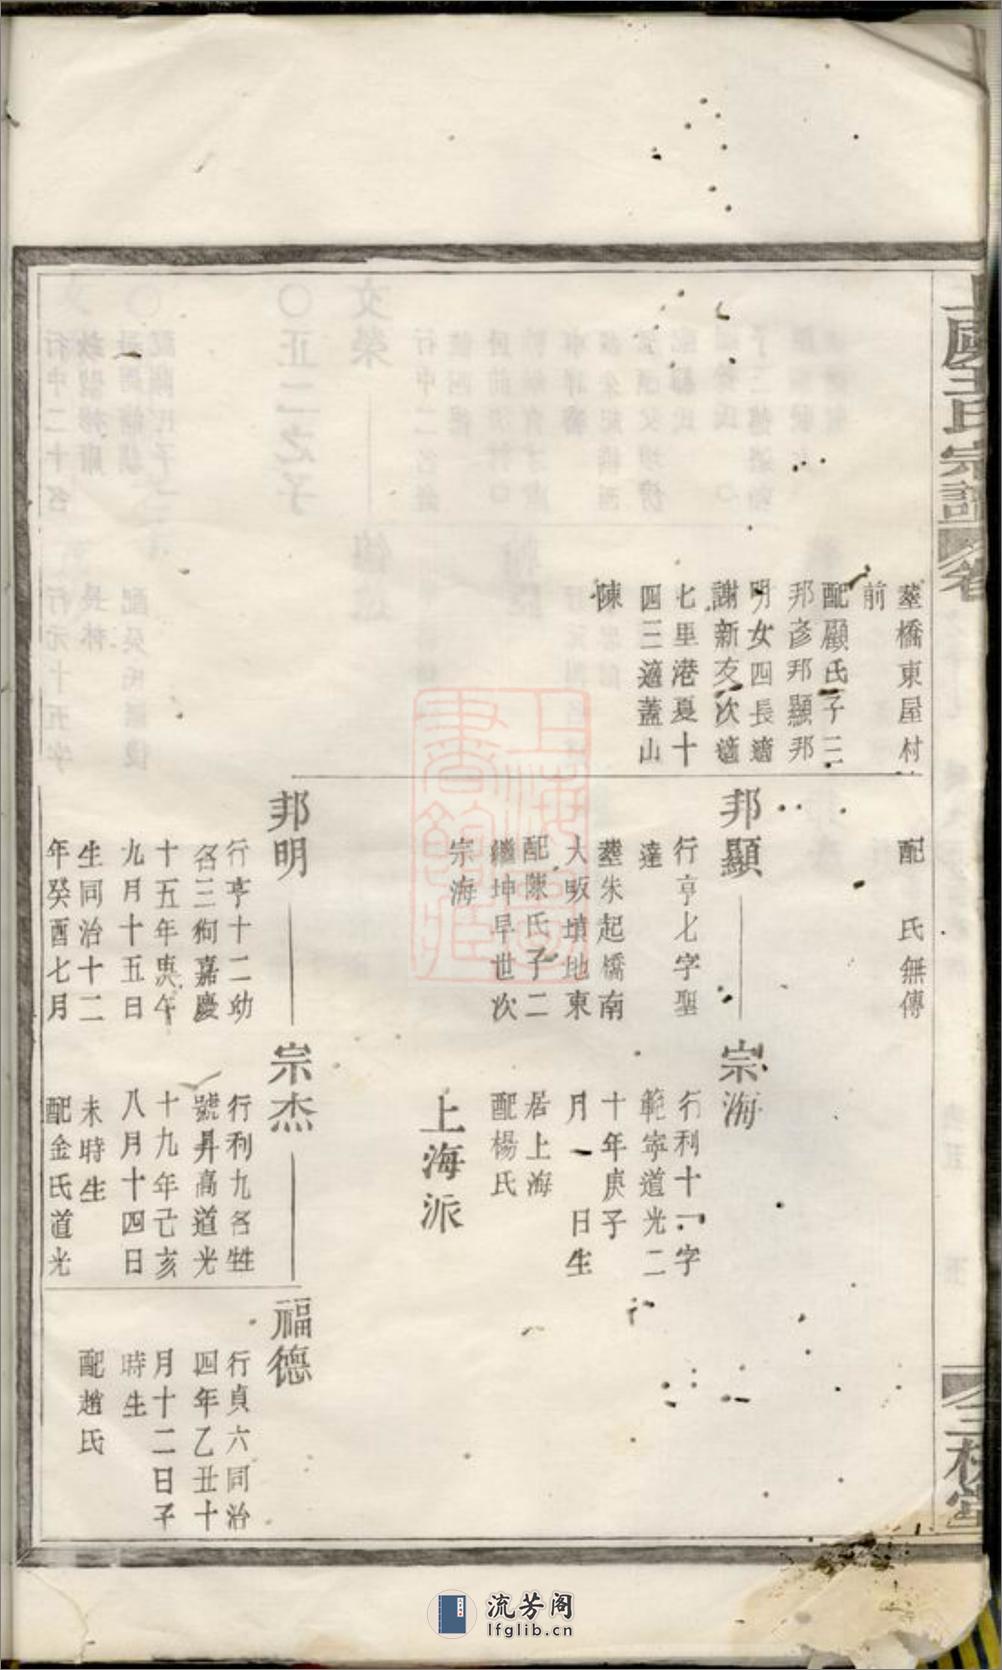 上虞王氏宗譜
卷
三槐堂
葬橋東屋村
前
配顧氏子三
邦彥邦顯邦
明女四長適
謝新友次適
七里港夏十
四三適蓋山
陳
配　氏無傳
邦顯
行亨七字聖
達
葬朱起橋南
大畈墳地東
配陳氏子二
繼坤早世次
宗海
宗海
行利十一字
範寧道光二
十年庚子
月　日生
居上海
配楊氏
上海派
邦明
行亨十二幼
名三狗嘉慶
十五年庚午
九月十五日
生同治十二
年癸酉七月
宗杰
行利九名牲
號昇高道光
十九年己亥
八月十四日
未時生
配金氏道光
福德
行貞六同治
四年乙丑十
月十二日子
時生
配趙氏
上海圖書館藏
流芳阁
lfglib.cn